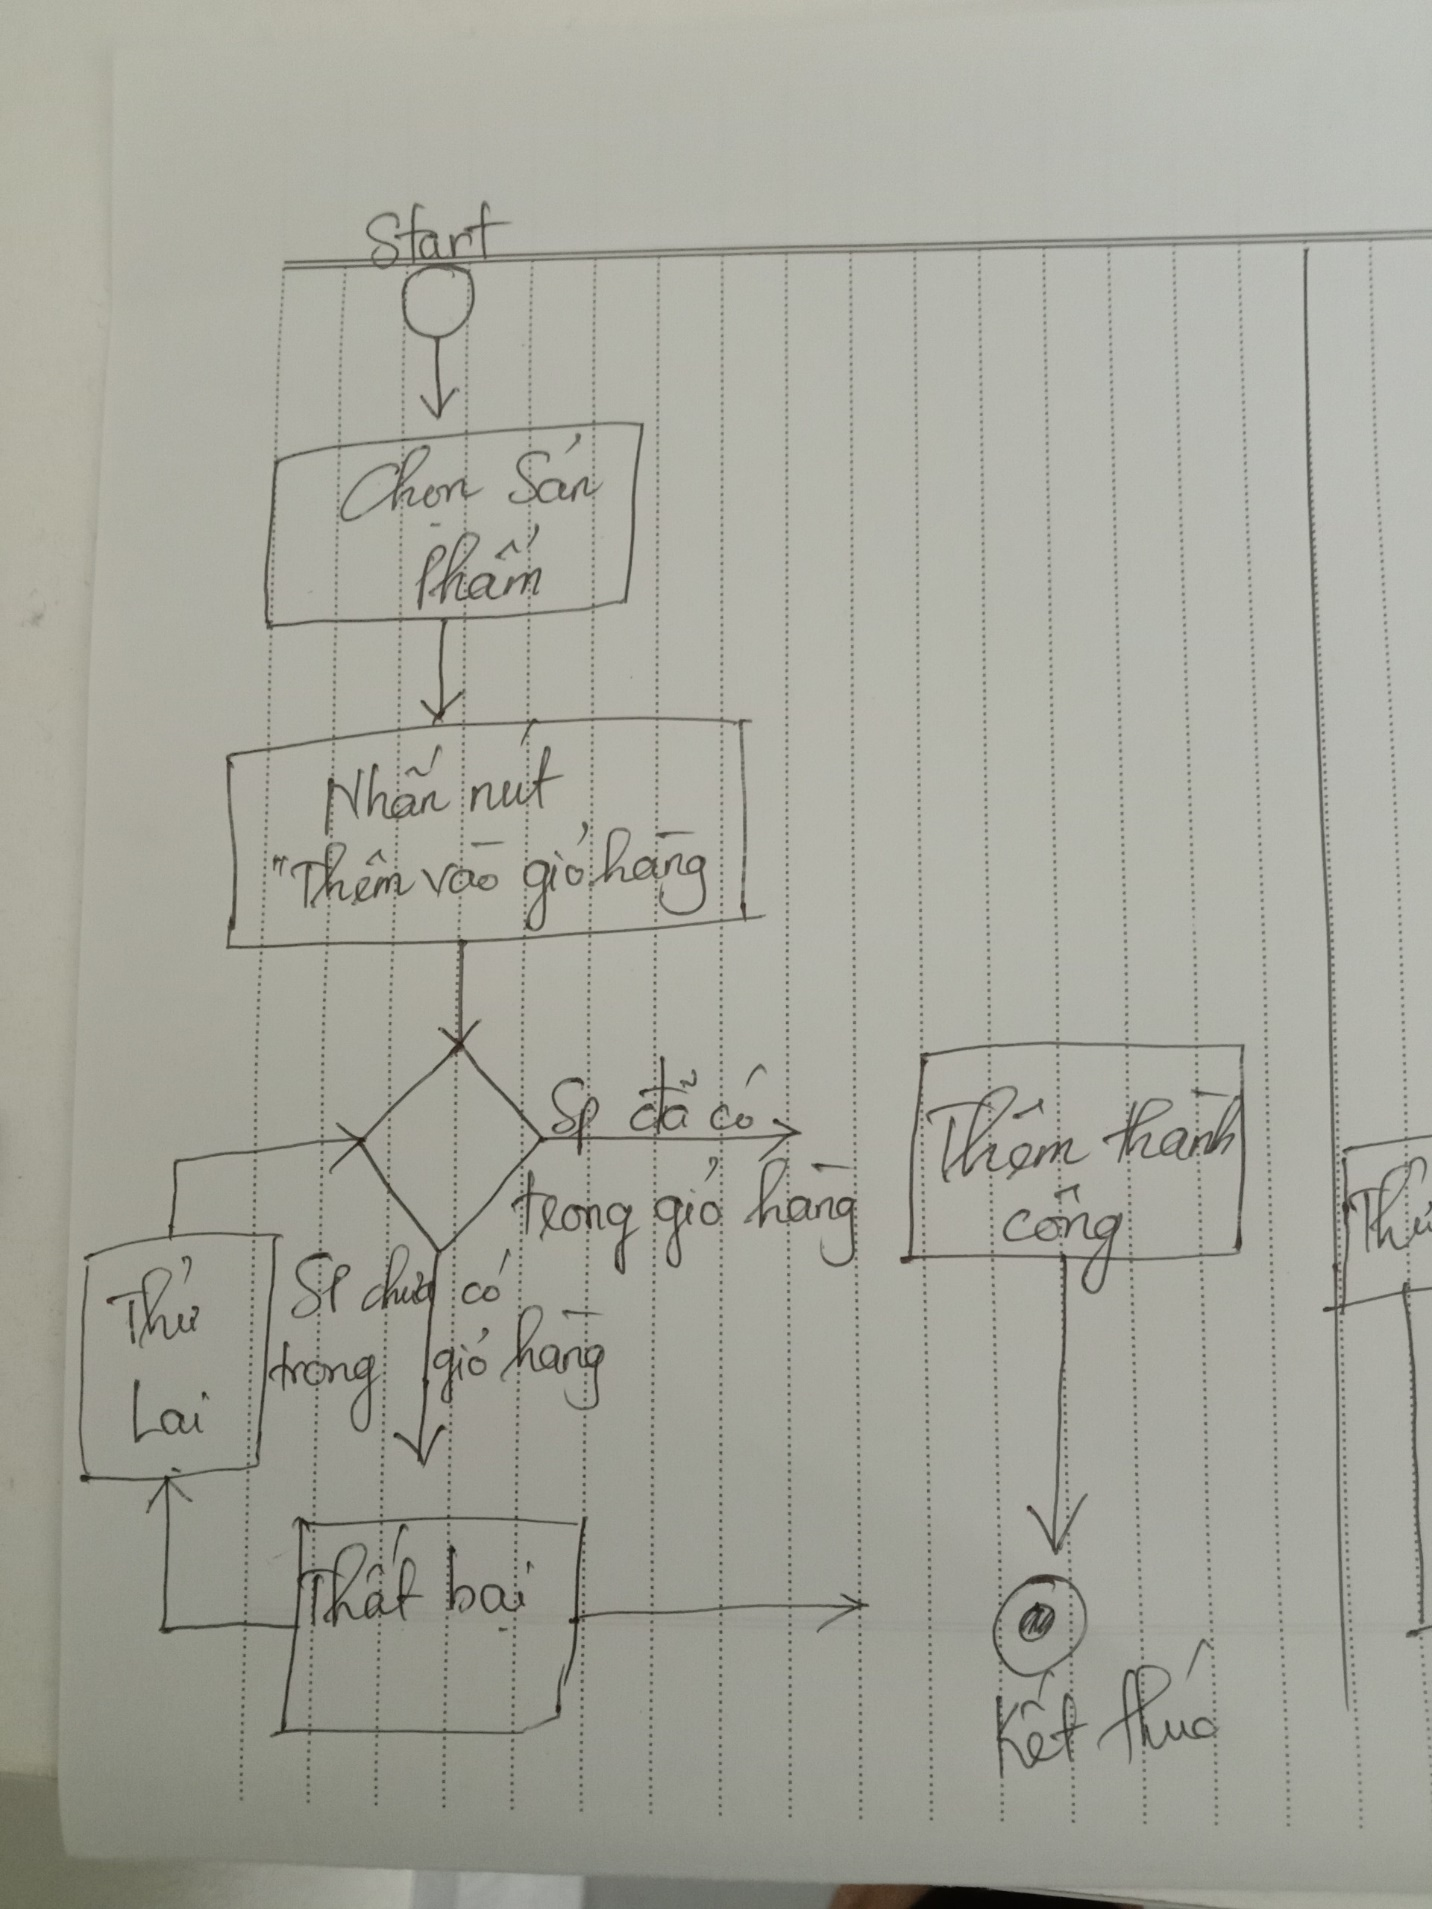 Start
Chọn Sán
Phấm
Nhấn nút
"Thêm vào giỏ hàng
Sp đã có
trong giỏ hàng
Thêm thành
công
Thử
Lại
SP chưa có
trong giỏ hàng
Thất bại
Kết thúc